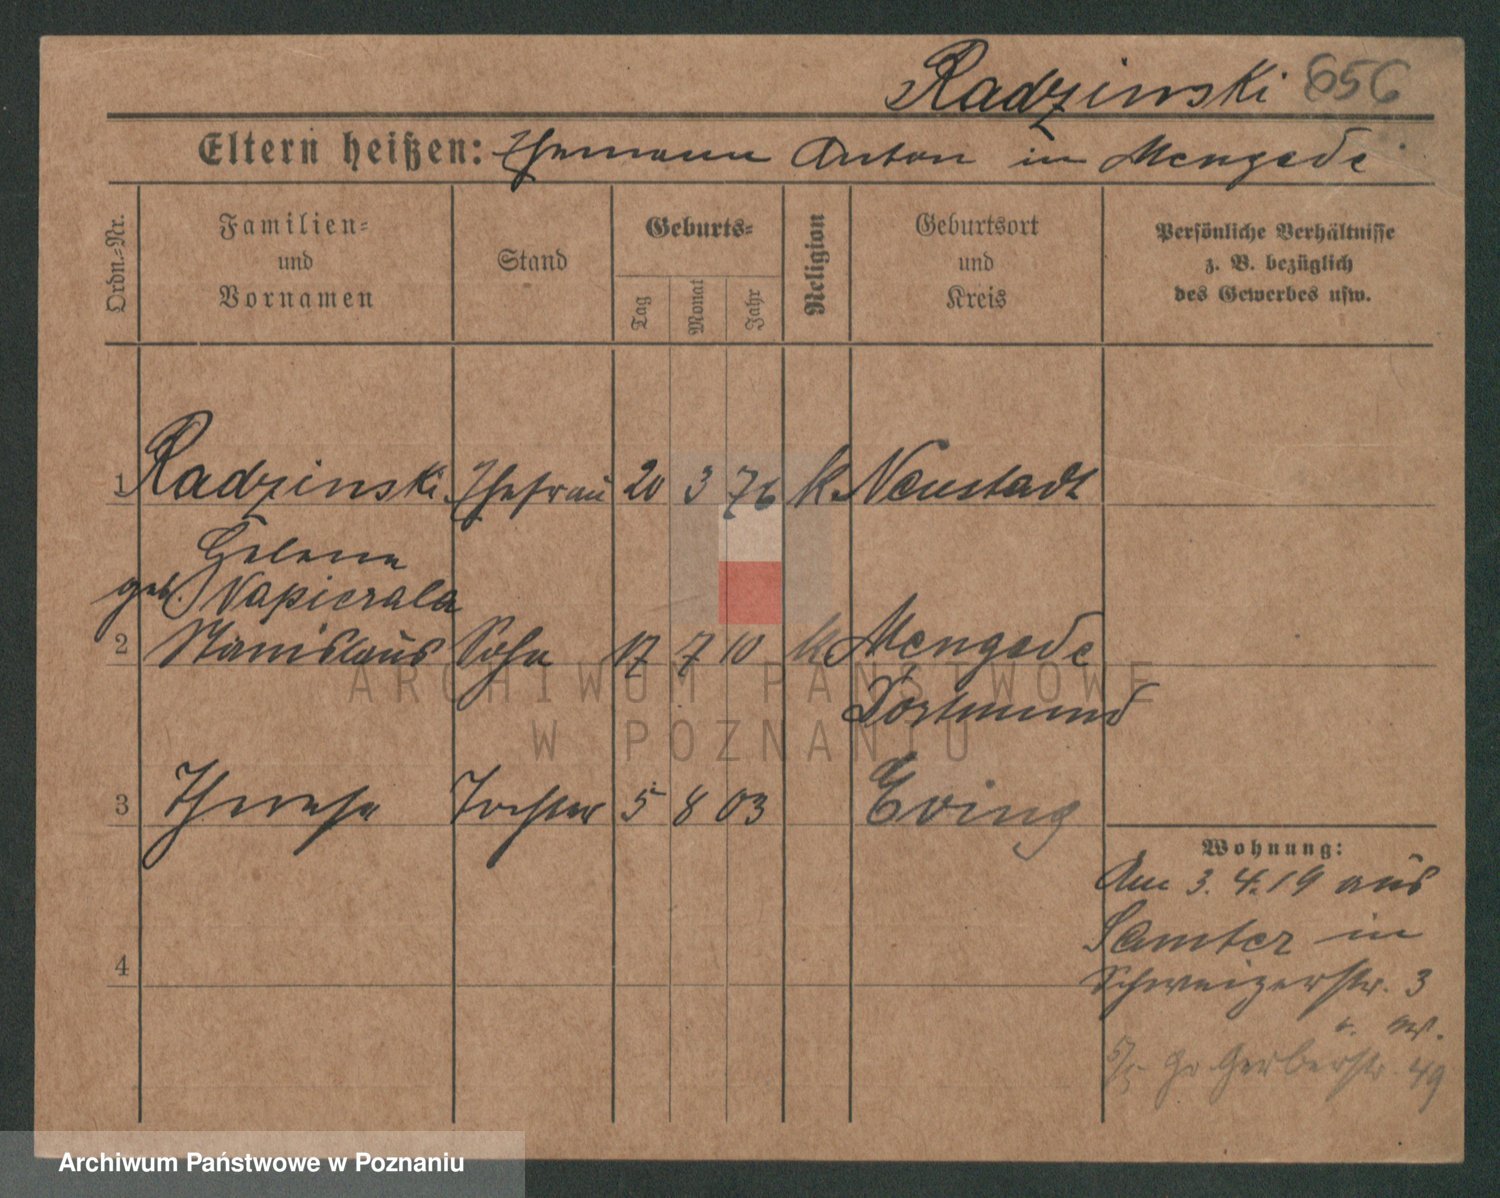 Radzinski 656
Eltern heißen: Ehemann Anton in Mengede
Ordn.-Nr.
Familien-
und
Vornamen
Stand
Geburts-
Tag
Monat
Jahr
Religion
Geburtsort
und
Kreis
Persönliche Verhältnisse
z. B. bezüglich
des Gewerbes usw.
1 Radzinski Ehefrau 20 3 76 k. Neustadt
Helene
geb. Napierala
2 Stanislaus Sohn 17 7 10 k Mengede
Dortmund
3 Therese Tochter 5 8 03 Eving
4
Wohnung:
Am 3.4.19 aus
Samter in
Schweizerstr. 3
5/5 Gr. Gerberstr. 49
ARCHIWUM PAŃSTWOWE
W POZNANIU
Archiwum Państwowe w Poznaniu